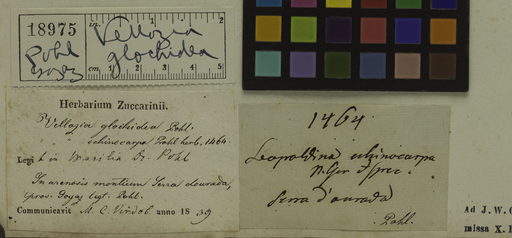 18975
Pohl
Goyaz
in.
Vellozia
glochidea
cm. 1 2 3 4 5
Herbarium Zuccarinii.
Vellozia glochidea Pohl.
" " echinocarpa Pohl herb. 1464.
Legit in Brasilia Dr. Pohl
In arenosis montium Serra dourada,
prov. Goyaz legt. Pohl.
Communicavit M. C. Vindob. anno 18 39
1464.
Leopoldina echinocarpa
N. Gen. & spec.
Serra d'ourada
Pohl.
Ad J. W. C
missa X. I